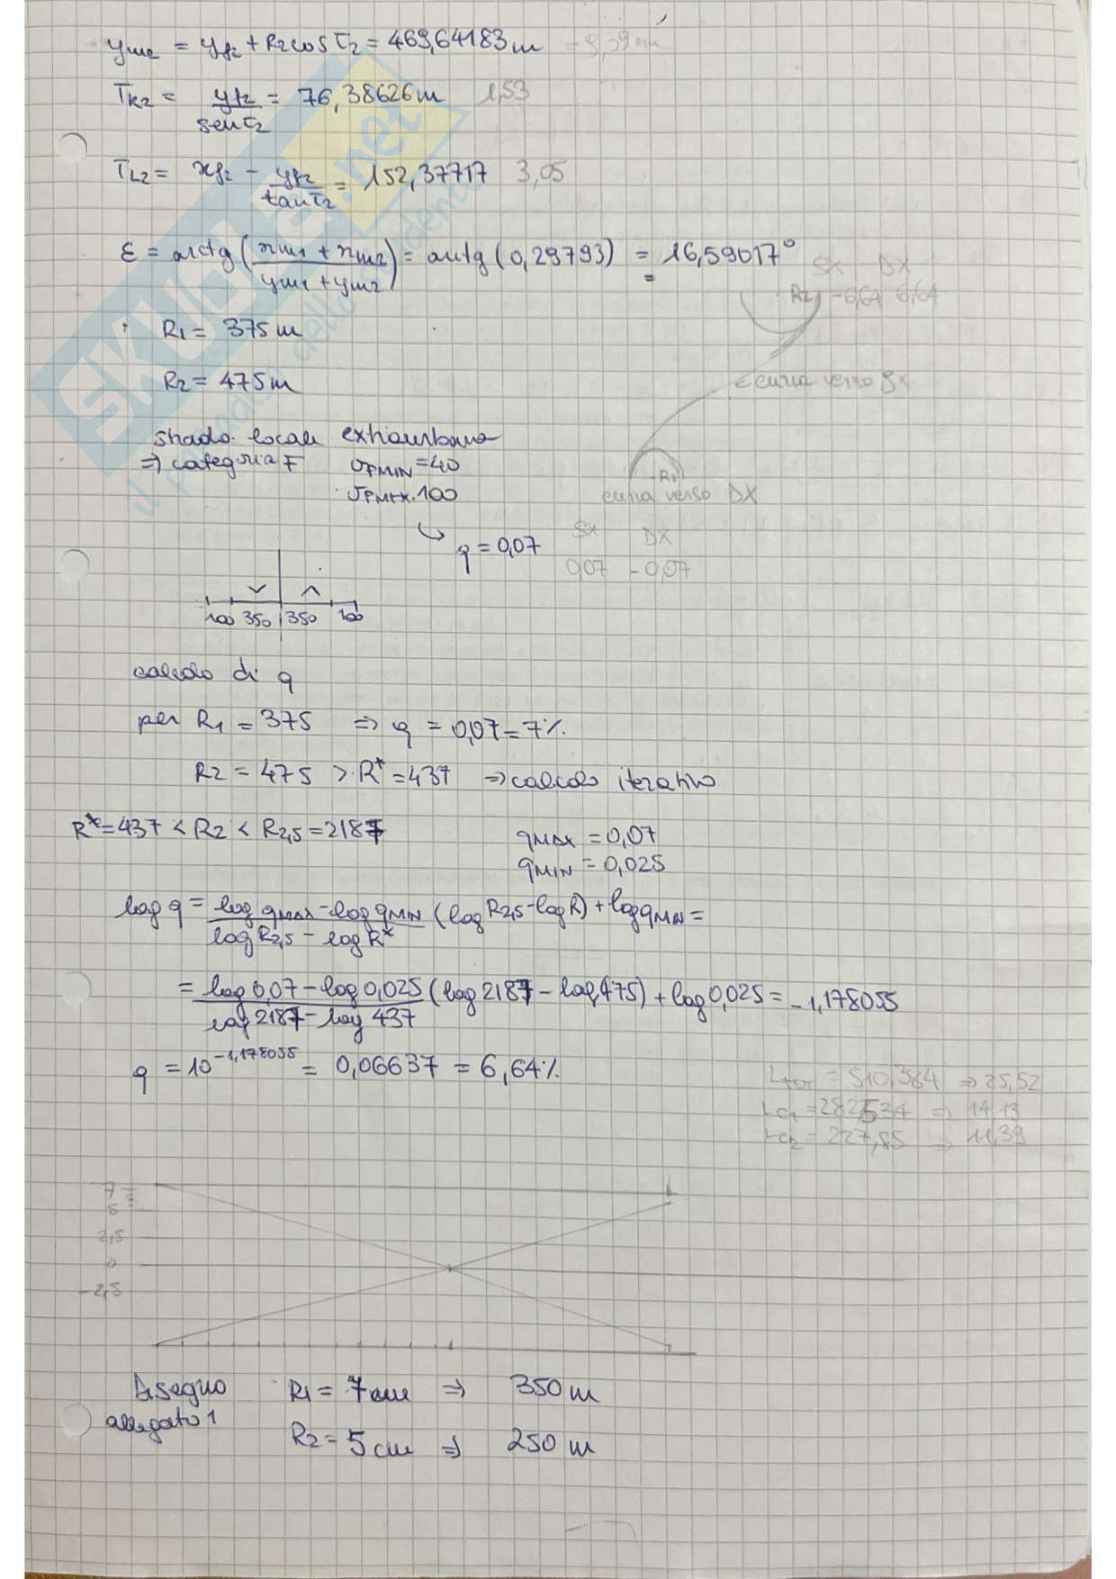 ym2 = yf2 + R2 cos τ2 = 469,64183 m
TK2 = yf2 / sen τ2 = 76,38626 m 1,53
TL2 = xf2 - yf2 / tan τ2 = 152,37717 3,05
ε = arctg (xm1 + xm2 / ym1 + ym2) = arctg (0,29793) = 16,59017°
SX DX
R2) -6,64 6,64
R1 = 375 m
R2 = 475 m
curva verso Sx
strada locale extraurbana
⇒ categoria F vPMIN = 40
vPMAX 100
R1
curva verso DX
q = 0,07
SX DX
0,07 -0,07
100 350 350 100
calcolo di q
per R1 = 375 ⇒ q = 0,07 = 7%
R2 = 475 > R* = 437 ⇒ calcolo iterativo
R* = 437 < R2 < R2,5 = 2187
qMAX = 0,07
qMIN = 0,025
log q = log qMAX - log qMIN / log R2,5 - log R* (log R2,5 - log R) + log qMIN =
= log 0,07 - log 0,025 / log 2187 - log 437 (log 2187 - log 475) + log 0,025 = -1,178055
q = 10^-1,178055 = 0,06637 = 6,64%
Ltot = 510,384 ⇒ 25,52
Lc1 = 282,534 ⇒ 14,13
Lc2 = 227,85 ⇒ 11,39
7
5
2,5
0
-2,5
Disegno R1 = 7 cm ⇒ 350 m
allegato 1
R2 = 5 cm ⇒ 250 m